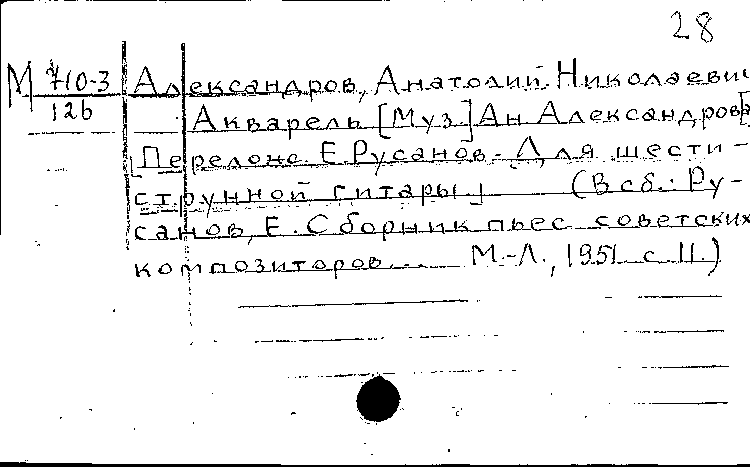 28
М 710-3 Александров, Анатолий Николаевич
126 Акварель [Муз.] Ан Александров[а]
[Перелож. Е. Русанов. - Для шести-
струнной гитары.] (В сб.: Ру-
санов, Е. Сборник пьес советских
композиторов... М.-Л., 1951. с. 11.)